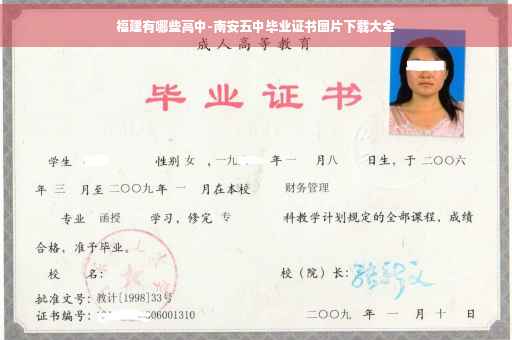 福建有哪些高中-南安五中毕业证书图片下载大全
成人高等教育
毕业证书
学生 性别 女 ,一九 年 一 月八 日生，于 二〇〇六
年 三 月至 二〇〇九年 一 月在本校 财务管理
专业 函授 学习，修完 专 科教学计划规定的全部课程，成绩
合格，准予毕业。
校 名： 校（院）长：
批准文号：教计[1998]33号
证书编号： 06001310 二〇〇九 年 一 月 十 日